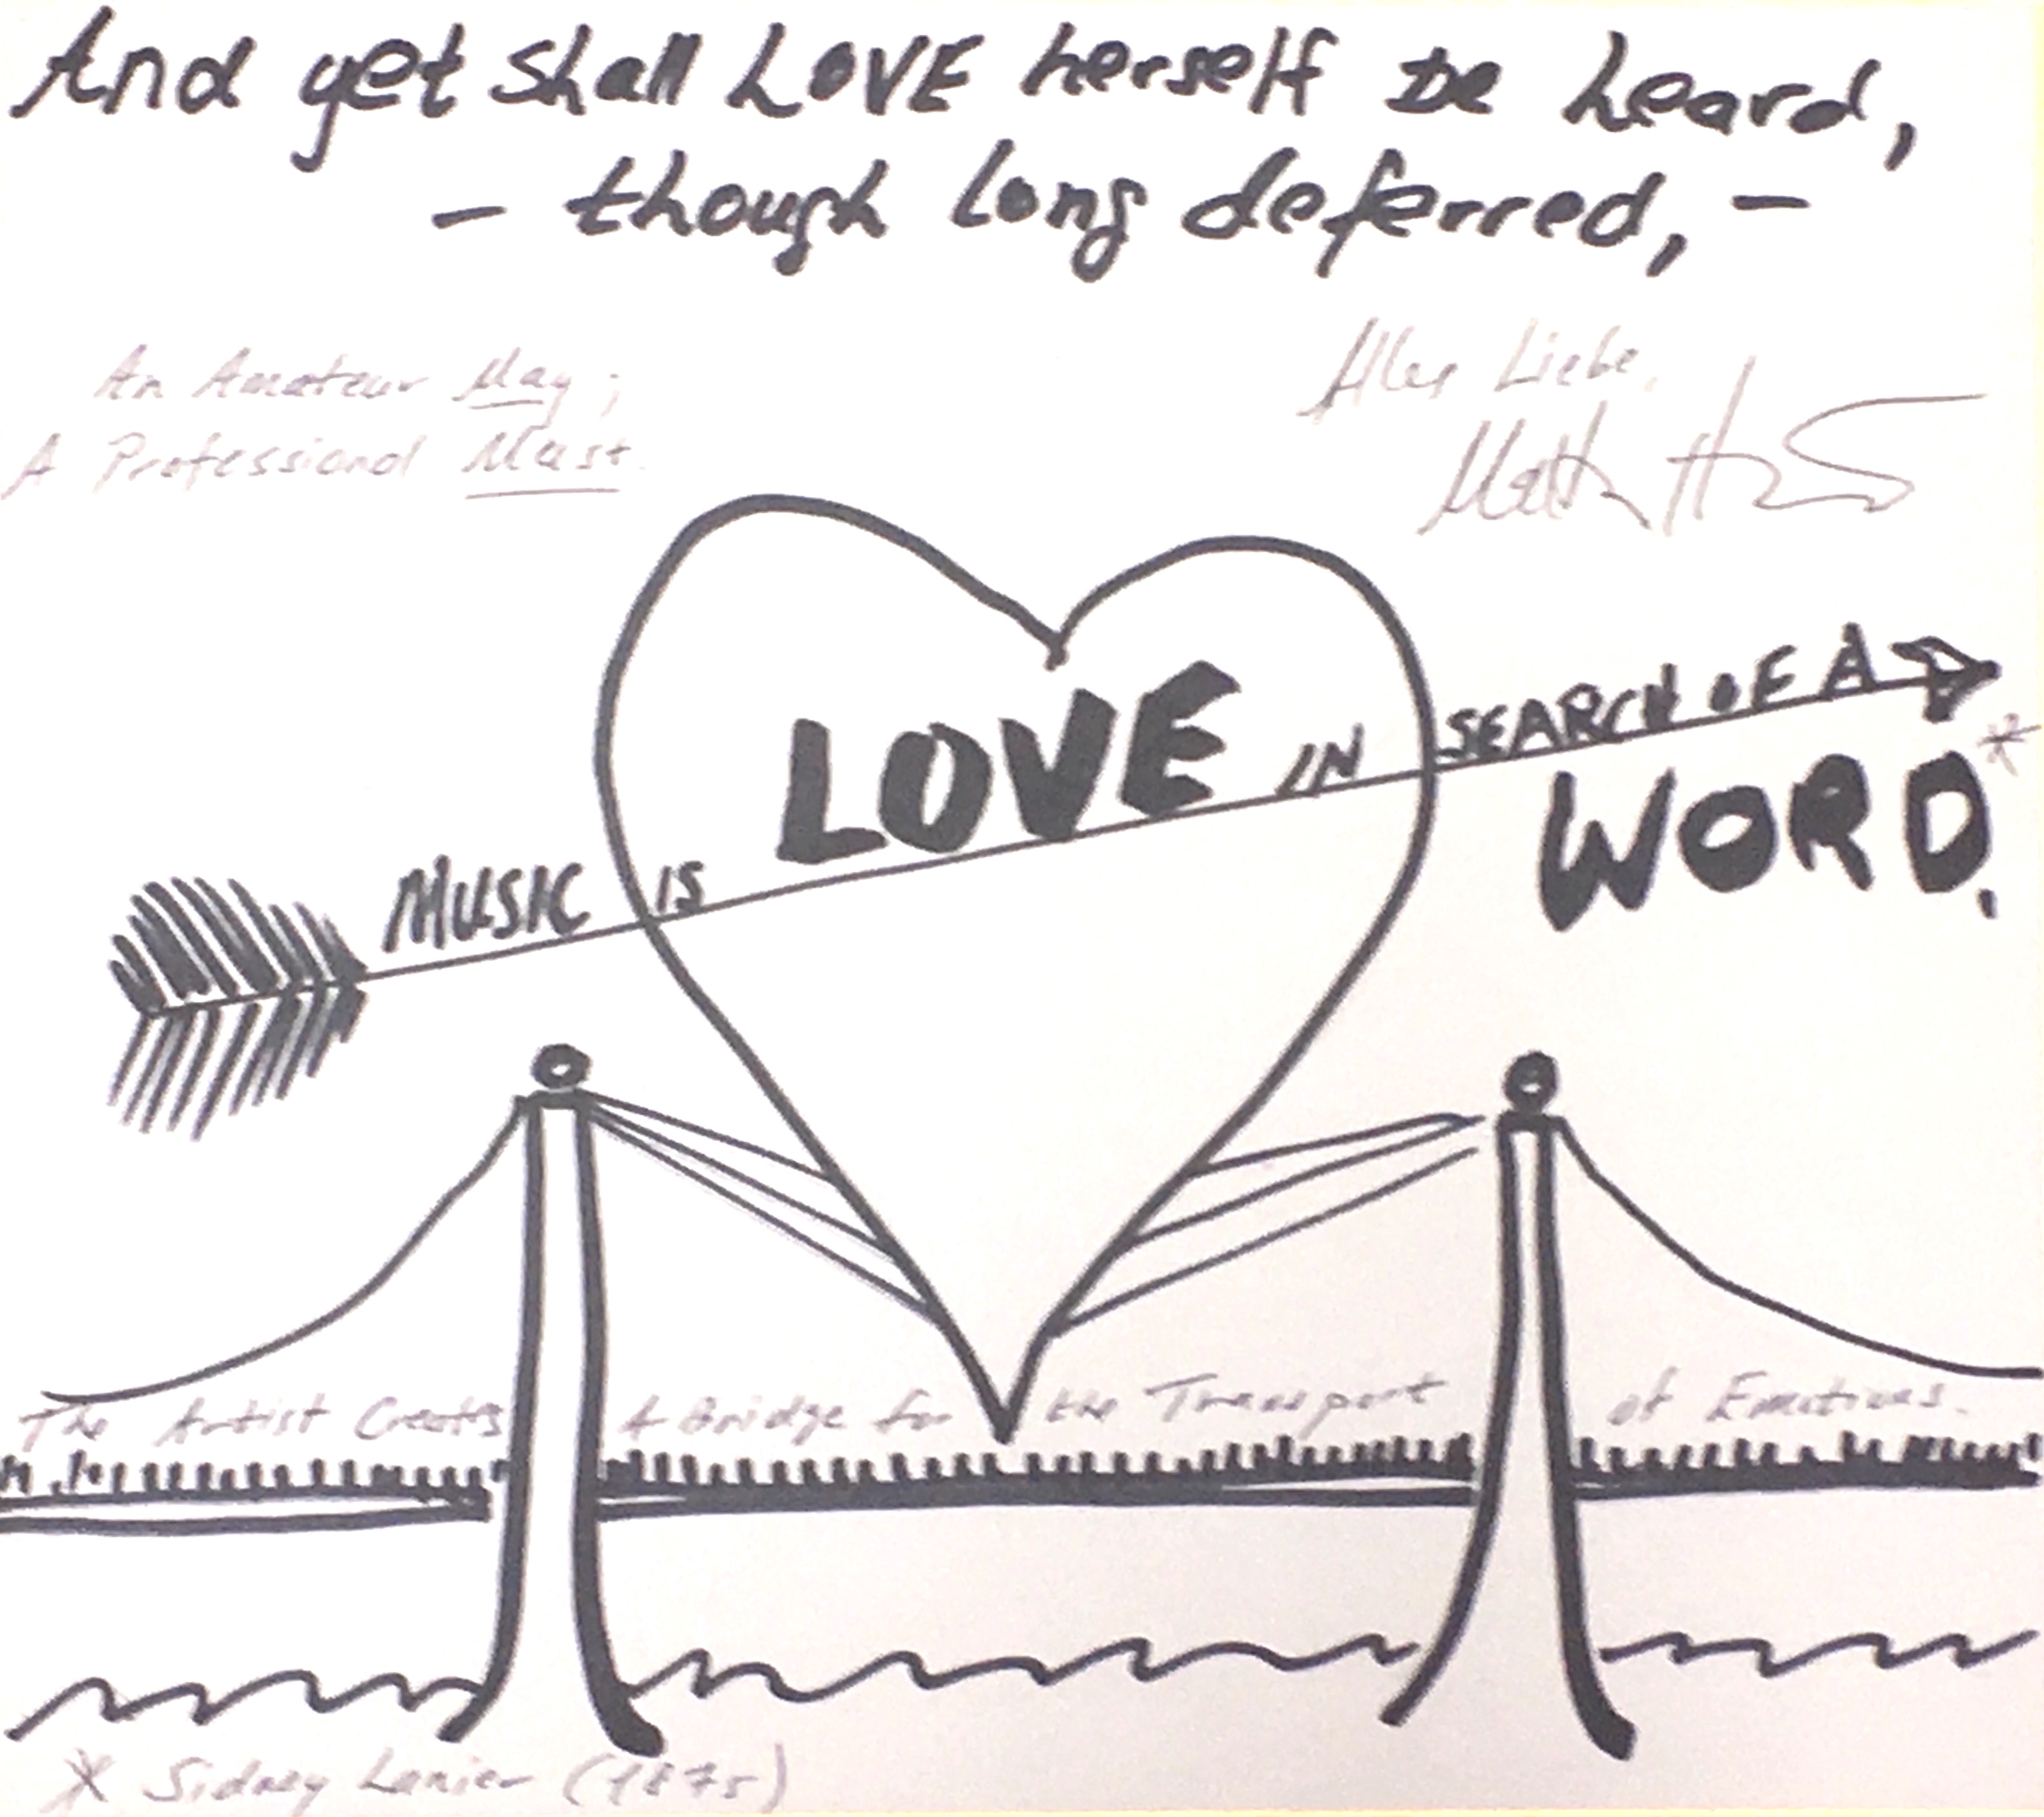 And yet shall LOVE herself be heard,
- though long deferred, -
An Amateur May;
A Professional Must.
Alles Liebe,
MUSIC IS LOVE IN SEARCH OF A
WORD.*
The Artist Creates A Bridge for the Transport of Emotions.
* Sidney Lanier (1875)